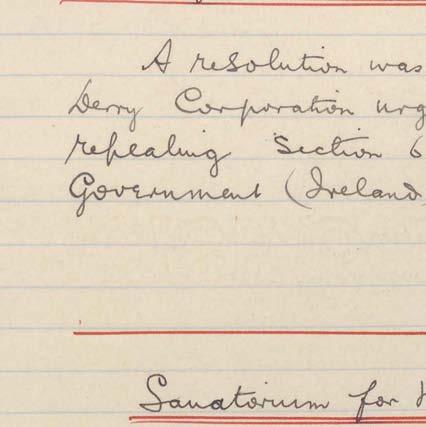 A resolution was
Derry Corporation urg
repealing Section 6
Government (Ireland
Sanatorium for